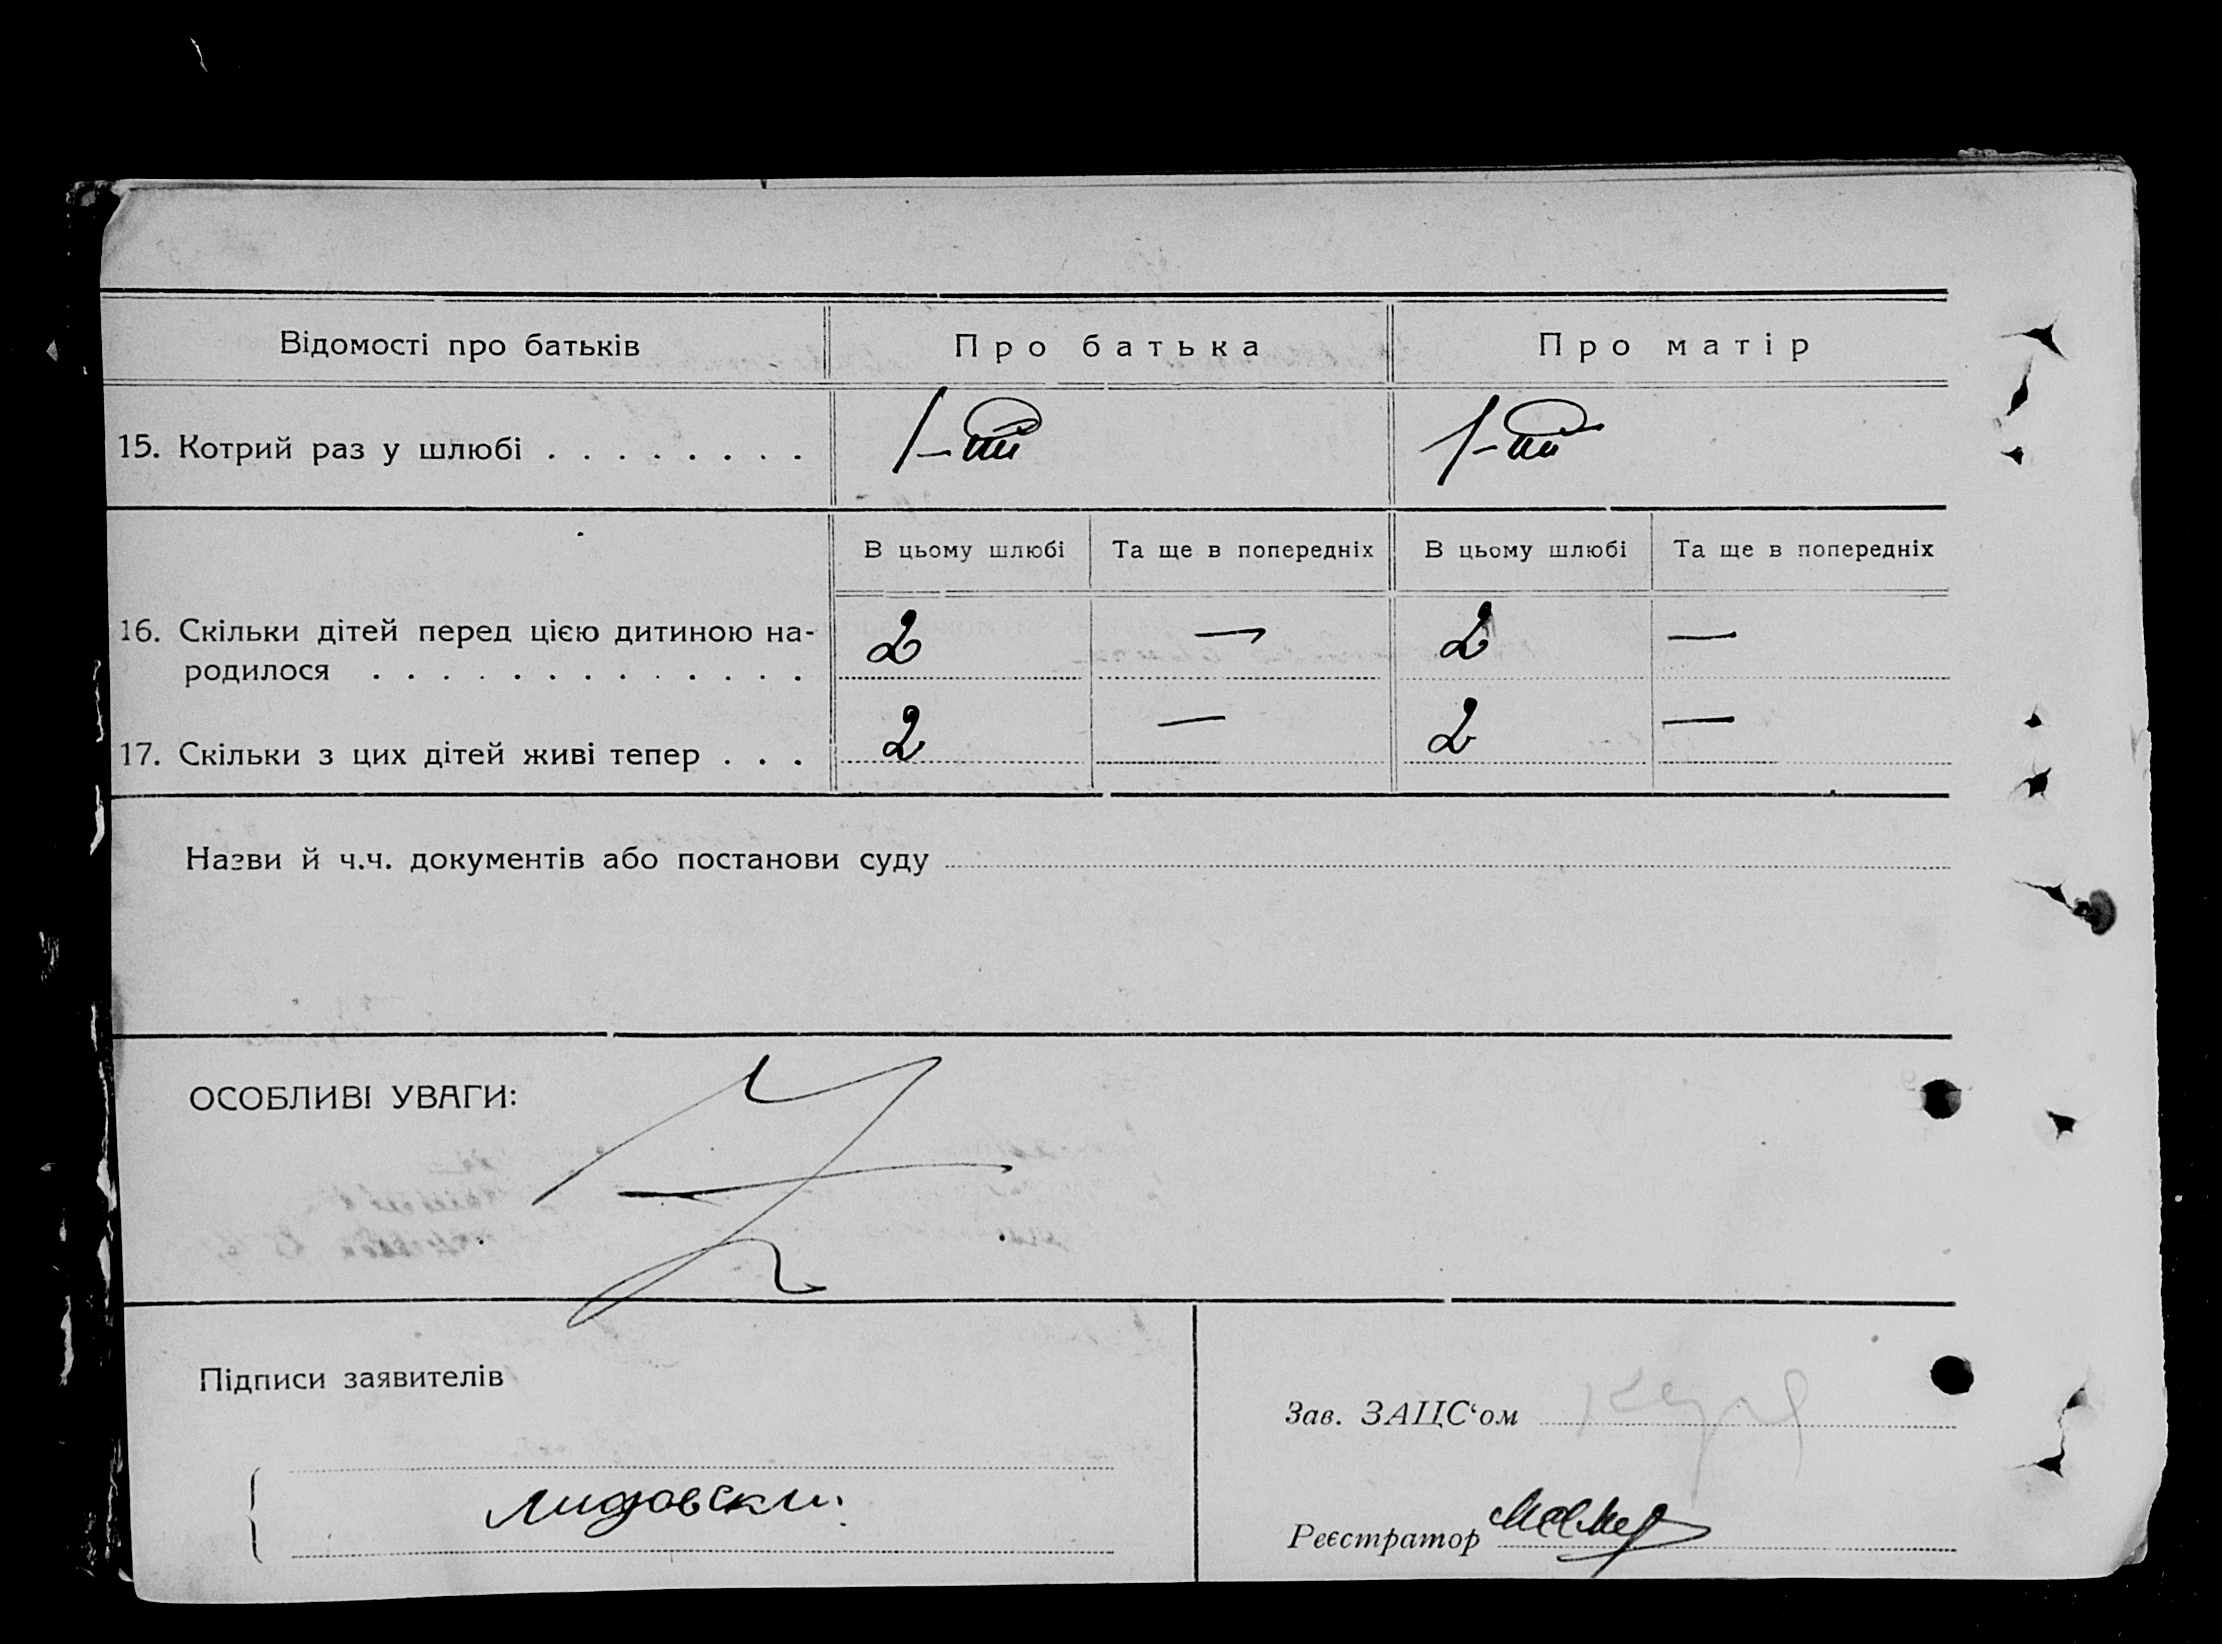 Відомості про батьків Про батька Про матір
15. Котрий раз у шлюбі . . . . . . . . 1-ий 1-ий
В цьому шлюбі Та ще в попередніх В цьому шлюбі Та ще в попередніх
16. Скільки дітей перед цією дитиною на-
родилося . . . . . . . . . . . . . . 2 — 2 —
17. Скільки з цих дітей живі тепер . . . 2 — 2 —
Назви й ч.ч. документів або постанови суду
ОСОБЛИВІ УВАГИ:
Підписи заявителів
Зав. ЗАЦС‘ом
Реєстратор